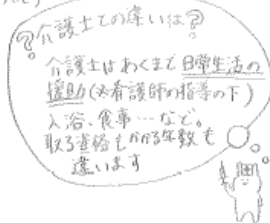 介護士との違いは?
介護士はあくまで日常生活の
援助(※看護師の指導の下)
入浴、食事…など。
取る資格もかかる年数も
違います